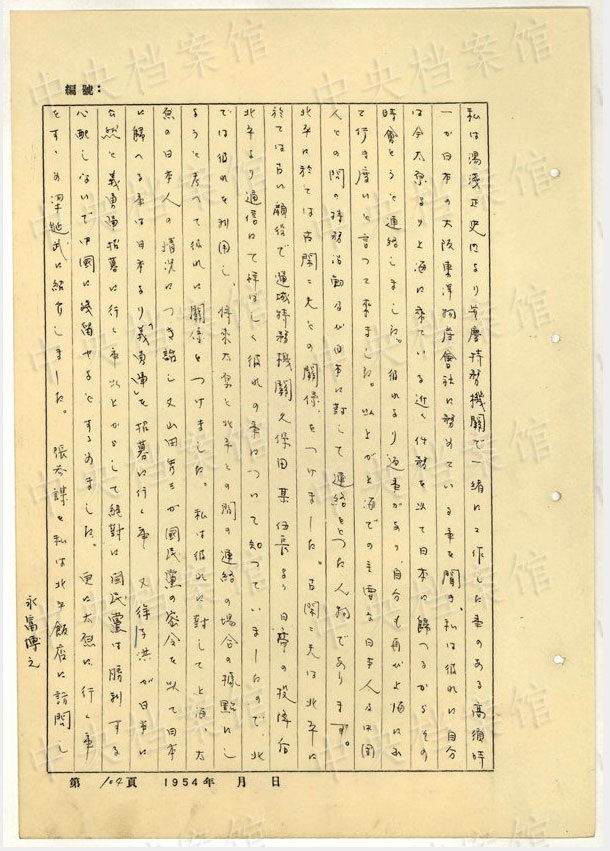 編號：
私は湯浅正史内より安慶特務機関で一緒に工作した事のある高須時
一が日本の大阪東洋物産會社に務めている事を聞き、私は彼れに自分
は今太原より上海に来ている近く任務を以て日本に歸つるからその
時會とうと連絡しました。彼れより返事があり、自分も再び上海に出
て行き度いと言つて来ました。以上が上海での主要な日本人及中国
人との間の特務活動及び日本に對して連絡をとつた人物であります。
北平に於ては古閑二夫との關係をつけました。古閑二夫は北平に
於ては古い顔役で運城特務機關久保田某伍長より日寇の投降后
北平より通信にて詳はしく彼れの事について知つていましたので、北
では彼れを利用し、将来太原と北平との間の連絡の場合の據點にし
ようと考へて彼れに關係をつけました。私は彼れに對してと海、太
原の日本人の情況につき話し又山田 が國民黨の密令を以て日本
に歸へる事は日本より「義勇軍」を招募に行く事 又徐 洪が日本に
義勇軍招募に行く事 以上からして絶對に國民黨は勝利する
心配しないで中國に残留せよとすゝめました。更に太原に行く事
をすゝめ梁 武に紹介しました。張 謀を私は北平飯店に訪問し
永富博之
第 104 頁 1954年 月 日
中央档案馆